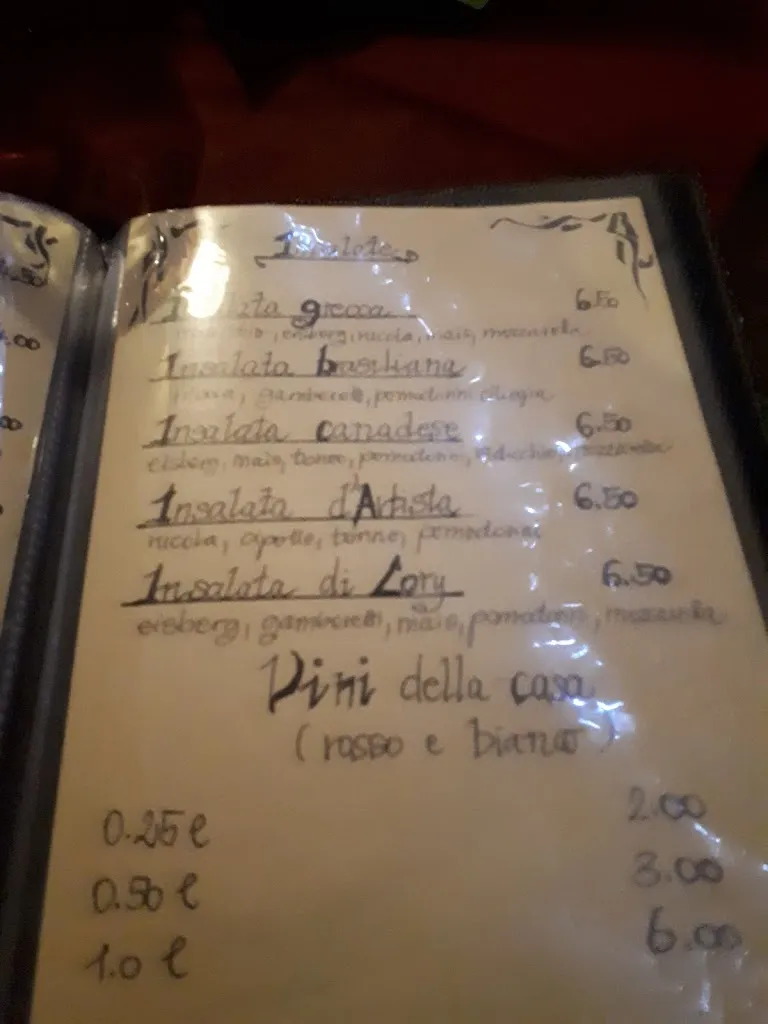 Insalate
Insalata greca 6.50
eisberg, rucola, mais, mozzarella
Insalata brasiliana 6.50
gamberetti, pomodorini
Insalata canadese 6.50
eisberg, mais, tonno, pomodorini, radicchio, mozzarella
Insalata d'Artista 6.50
rucola, cipolle, tonno, pomodorini
Insalata di Lory 6.50
eisberg, gamberetti, mais, pomodorini, mozzarella
Vini della casa
(rosso e bianco)
0.25 l 2.00
0.50 l 3.00
1.0 l 6.00
.50
.00